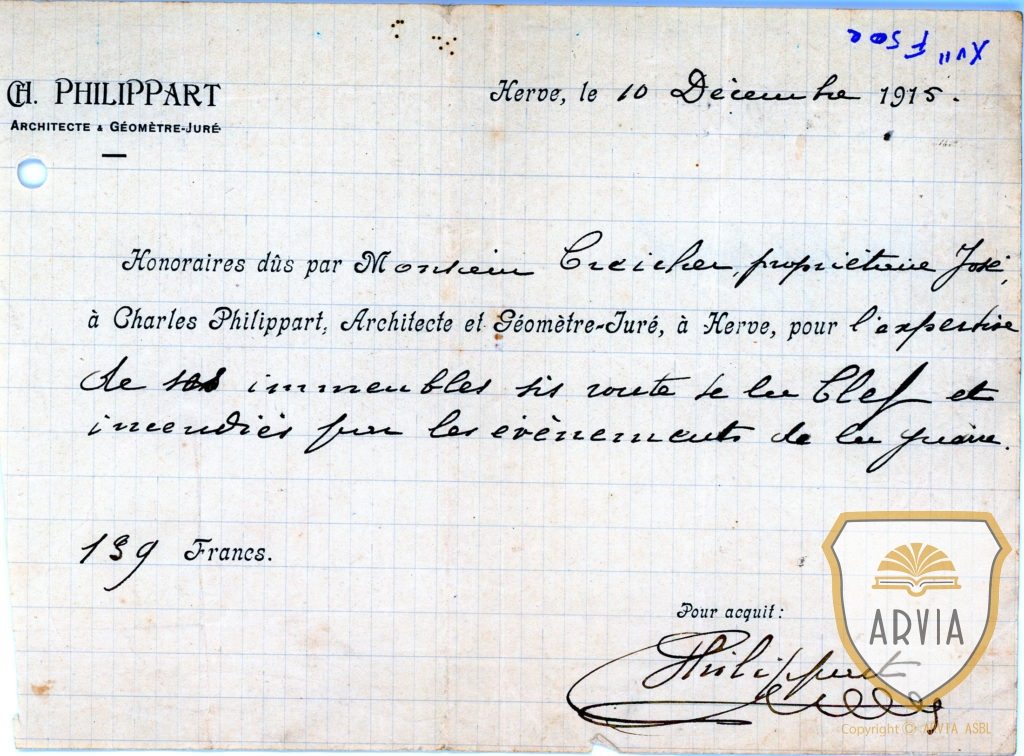 XVII F 502
CH. PHILIPPART
ARCHITECTE & GÉOMÈTRE-JURÉ
Herve, le 10 Décembre 1915.
Honoraires dûs par Monsieur Creicher, propriétaire José,
à Charles Philippart, Architecte et Géomètre-Juré, à Herve, pour l'expertise
de ses immeubles sis route de la Clef et
incendiés par les évènements de la guerre.
139 Francs.
Pour acquit:
Philippart
ARVIA
Copyright © ARVIA ASBL